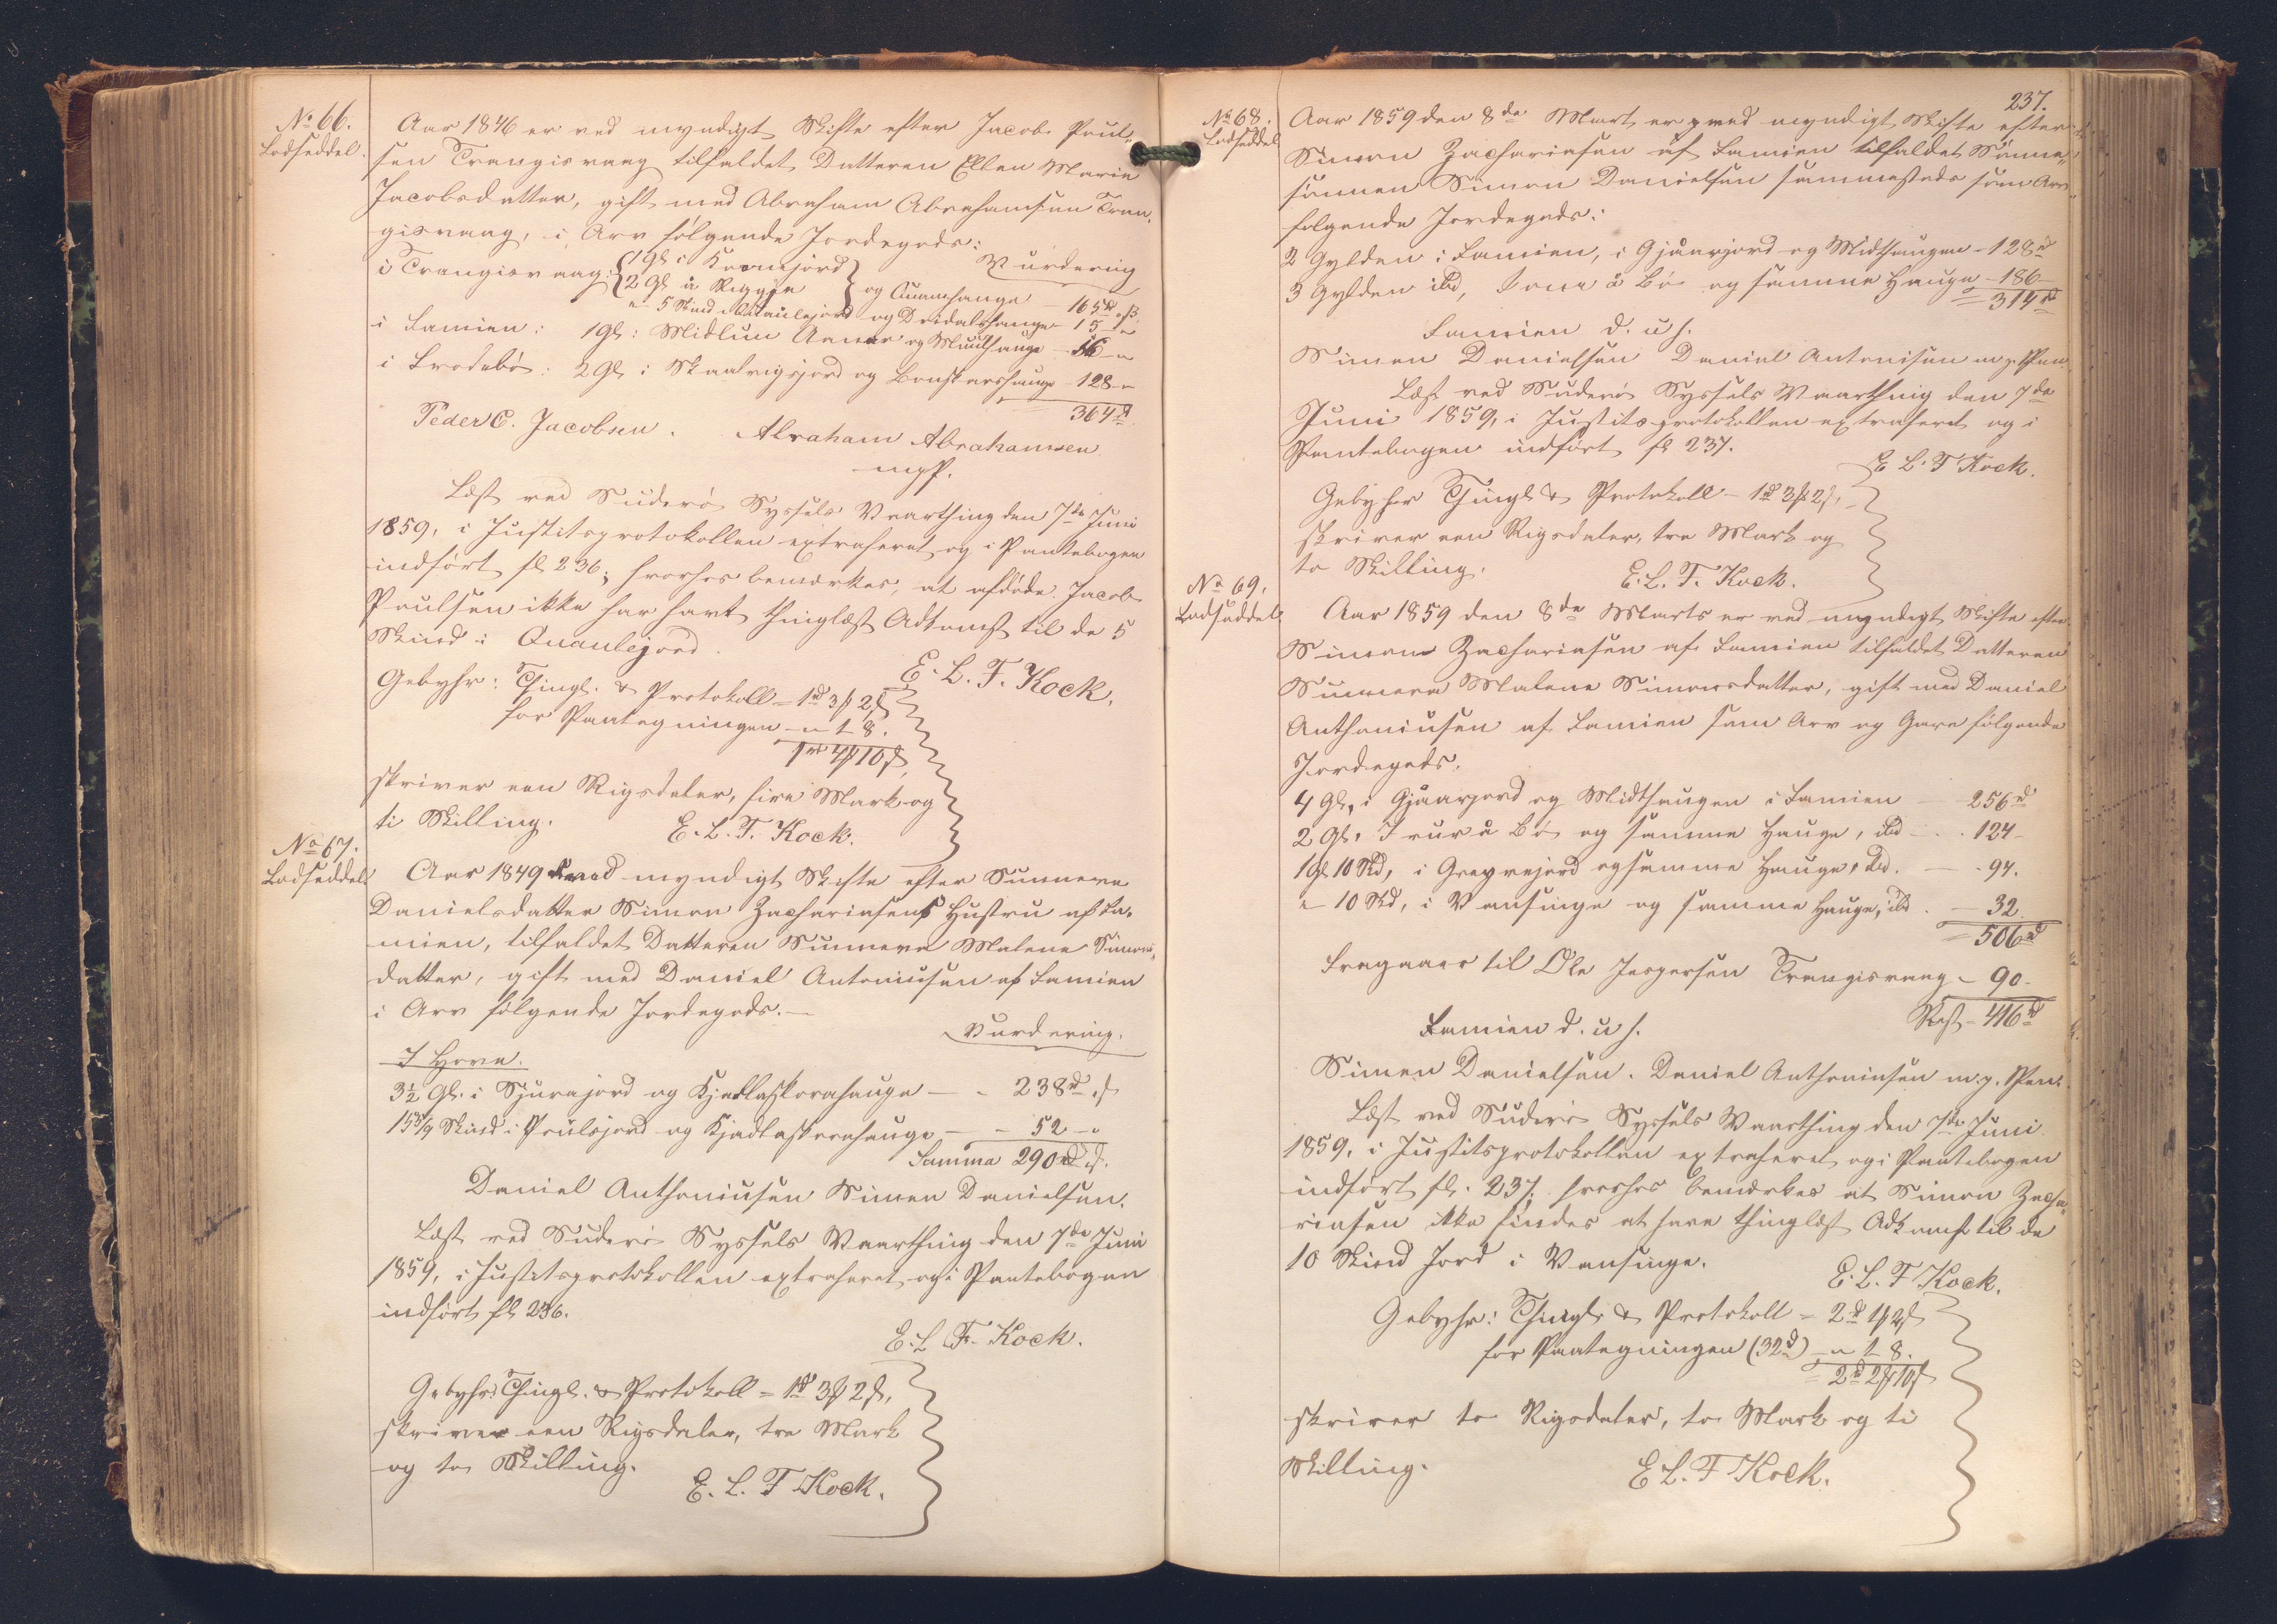 No 66.
Lodseddel.
Aar 1846 er ved myndigt Skifte efter Jacob Poul-
sen Trangisvaag tilfaldet Datteren Ellen Marie
Jacobsdatter, gift med Abraham Abrahamsen Tran-
gisvaag, i Arv følgende Jordegods:
Vurdering
i Trangisvaag: 1 Gl. i
2 Gl. å Ryggin og Quamhauge 165rd „ß
„ 5 Skind i Quaulejord og Dvidalshauge - 15 - „
i Famien: 1 Gl: Midlun Annar og Muulhauge - 56 - „
i Frodebø: 2 Gl. i Skaalvigsjord og - 128 - „
364rd
Peder C. Jacobsen. Abraham Abrahamsen
mpP.
Læst ved Suderø Syssels Vaarthing den 7de Juni
1859, i Justitsprotokollen extraheret og i Pantebogen
indført fl 236; hvorhos bemærkes, at afdøde Jacob
Poulsen ikke har havt thinglæst Adkomst til de 5
Skind i Quaulejord.
E. L. F. Kock.
Gebyhr: Thingl. & Protokoll = 1rd 3 2ß
for Paategningen - „ 1 - 8.
1rd 4 10ß,
skriver een Rigsdaler, fire Mark og
ti Skilling.
E. L. F. Kock.
No 67.
Lodseddel.
Aar 1849 ved myndigt Skifte efter Sunneva
Danielsdatter Simon Zachariasens Hustru af Fa-
mien, tilfaldet Datteren Sunneva Malene Simons-
datter, gift med Daniel Antoniusen af Famien
i Arv følgende Jordegods. —
Vurdering.
I Hove.
3½ Gl. i Sjurajord og Kjadlaskorahauge — - 238rd „ß
Skind i Poulsjord og Kjadlaskorahauge — - 52 - „
Summa 290rd „ß.
Daniel Anthoniusen Simon Danielsen.
Læst ved Suderø Syssels Vaarthing den 7de Juni
1859, i Justitsprotokollen extraheret og i Pantebogen
indført fl 236.
E. L. F. Kock.
Gebyhr: Thingl. & Protokoll = 1rd 3 2ß,
skriver een Rigsdaler, tre Mark
og to Skilling.
E. L. F Kock.
237.
No 68.
Lodseddel
Aar 1859 den 8de Mart er ved myndigt Skifte efter
Simon Zachariasen af Famien tilfaldet Sønne-
sønnen Simon Danielsen sammesteds som Arv
følgende Jordegods:
2 Gylden i Famien, i Gjåarjord og Midthaugen - 128rd
3 Gylden ibd, å Bø og samme Hauge - 186 -
= 314rd
Famien d. u s.
Simon Danielsen Daniel Antonisen m. p. Pen.
Læst ved Suderø Syssels Vaarthing den 7de
Juni 1859, i Justitsprotokollen extraheret og i
Pantebogen indført fl 237.
E. L. F Kock.
Gebyhr Thingl & Protokoll - 1rd 3 2ß,
skriver een Rigsdaler, tre Mark og
to Skilling.
E. L. F. Kock.
No 69.
Lodseddel.
Aar 1859 den 8de Marts er ved myndigt Skifte efter
Simon Zachariasen af Famien tilfaldet Datteren
Sunneva Malene Simonsdatter, gift med Daniel
Anthoniusen af Famien som Arv og Gave følgende
Jordegods.
4 Gl, i Gjåarjord og Midthaugen i Famien - 256rd
2 Gl. å Bø og samme Hauge, ibd - . 124 -
1 Gl 10 Skd, i Greyvejord og samme Hauge, ibd. - - 94.
„ - 10 Skd, i Vansinge og samme Hauge, ibd. - 32
= 506rd
Fragaaer til Ole Jespersen Trangisvaag - 90 -
Rest - 416rd
Famien d. u s.
Simon Danielsen. Daniel Anthoniusen m. p. Pen.
Læst ved Suderø Syssels Vaarthing den 7de Juni
1859, i Justitsprotokollen extraheret og i Pantebogen
indført fl. 237. hvorhos bemærkes at Simon Zacha-
riasen ikke findes at have thinglæst Adkomst til de
10 Skind Jord i Vansinge.
E. L. F Kock.
Gebyhr: Thingl & Protokoll = 2rd 1 2ß
for Paategningen (32rd) - „ 1 - 8.
= 2rd 2 10ß
skriver to Rigsdaler, to Mark og ti
Skilling.
E L. F Kock.